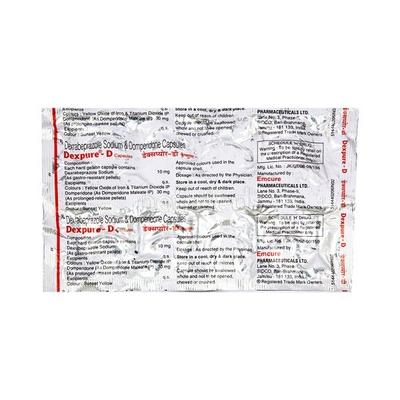 Colours : Yellow Oxide of Iron & Titanium Dioxide IP
Domperidone (As Domperidone Maleate IP) 30 mg
(As prolonged-release pellets)
Excipients q.s.
Colour : Sunset Yellow
Dexrabeprazole Sodium & Domperidone Capsules
Dexpure - D Capsules
Composition :
Each hard gelatin capsule contains
Dexrabeprazole Sodium 10 mg
(As gastro-resistant pellets)
Excipients q.s.
Colours : Yellow Oxide of Iron & Titanium Dioxide IP
Domperidone (As Domperidone Maleate IP) 30 mg
(As prolonged-release pellets)
Excipients q.s.
Colour : Sunset Yellow
Dexrabeprazole Sodium & Domperidone Capsules
Dexpure - D
Composition :
Each hard gelatin capsule contains
Dexrabeprazole Sodium 10 mg
(As gastro-resistant pellets)
Excipients q.s.
Colours : Yellow Oxide of Iron & Titanium Dioxide IP
Domperidone (As Domperidone Maleate IP) 30 mg
(As prolonged-release pellets)
Excipients q.s.
Colour : Sunset Yellow
Store in a cool, dry & dark place.
Keep out of reach of children.
Capsule should be swallowed
whole and not to be opened,
chewed or crushed.
डेक्सप्योर - डी
Approved colours used in the
capsule shell.
Dosage : As directed by the Physician
Store in a cool, dry & dark place.
Keep out of reach of children.
Capsule should be swallowed
whole and not to be opened,
chewed or crushed.
डेक्सप्योर - डी
Approved colours used in the
capsule shell.
Dosage : As directed by the Physician
Store in a cool, dry & dark place.
Keep out of reach of children.
Capsule should be swallowed
whole and not to be opened,
chewed or crushed.
PHARMACEUTICALS LTD.
Lane No. 3, Phase-II,
SIDCO, Bari-Brahmana,
Jammu - 181 133, India.
® Registered Trade Mark Owners
SCHEDULE H DRUG
Warning : To be sold by retail on
the prescription of a Registered
Medical Practitioner only.
Manufactured by :
Emcure
PHARMACEUTICALS LTD.
Lane No. 3, Phase-II,
SIDCO, Bari-Brahmana,
Jammu - 181 133, India.
® Registered Trade Mark Owners
SCHEDULE H DRUG
Warning : To be sold by retail on
the prescription of a Registered
Medical Practitioner only.
Manufactured by :
Emcure
PHARMACEUTICALS LTD.
Lane No. 3, Phase-II,
SIDCO, Bari-Brahmana,
Jammu - 181 133, India.
® Registered Trade Mark Owners
Dexpure - D
Dexpure - D